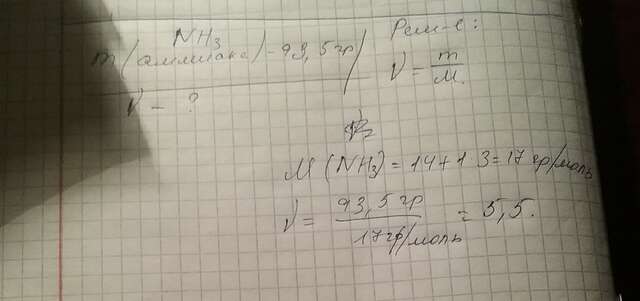 NH₃
m (аммиака) - 93,5 гр
ν - ?
Реш-е:
ν = m/M.
M (NH₃) = 14 + 1 3 = 17 гр/моль
ν = 93,5 гр / 17 гр/моль = 5,5.